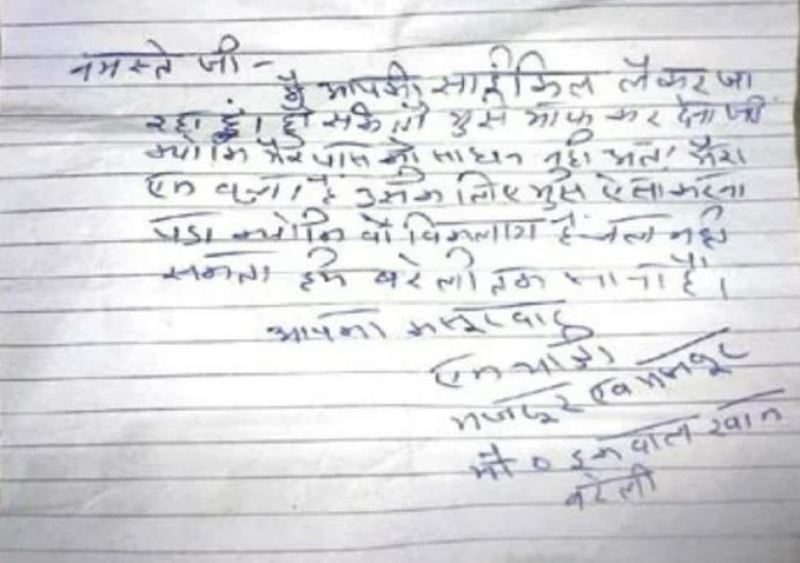 नमस्ते जी -
मैं आपकी साईकिल लेकर जा
रहा हूं। हो सके तो मुझे माफ कर देना जी
क्योकि मेरे पास को साधन नही अतः मेरा
एक बच्चा है उसके लिए मुझे ऐसा करना
पडा क्योकि वो विकलांग है चल नही
सकता हमे बरेली तक जाना है।
आपका कसूरवार
एक यात्री
मजदूर एव मजबूर
मौ० इकबाल खान
बरेली